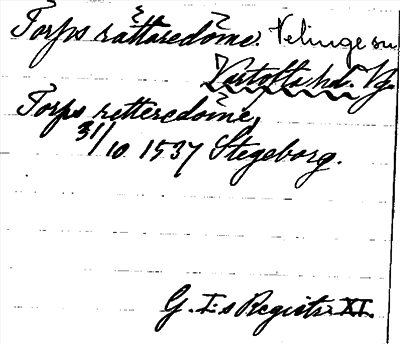 Torps rättaredöme. Velinge sn
Vartofta hd. Vg.
Torps retteredöme,
31/10 1537 Stegeborg.
G. I:s Registr. XI.